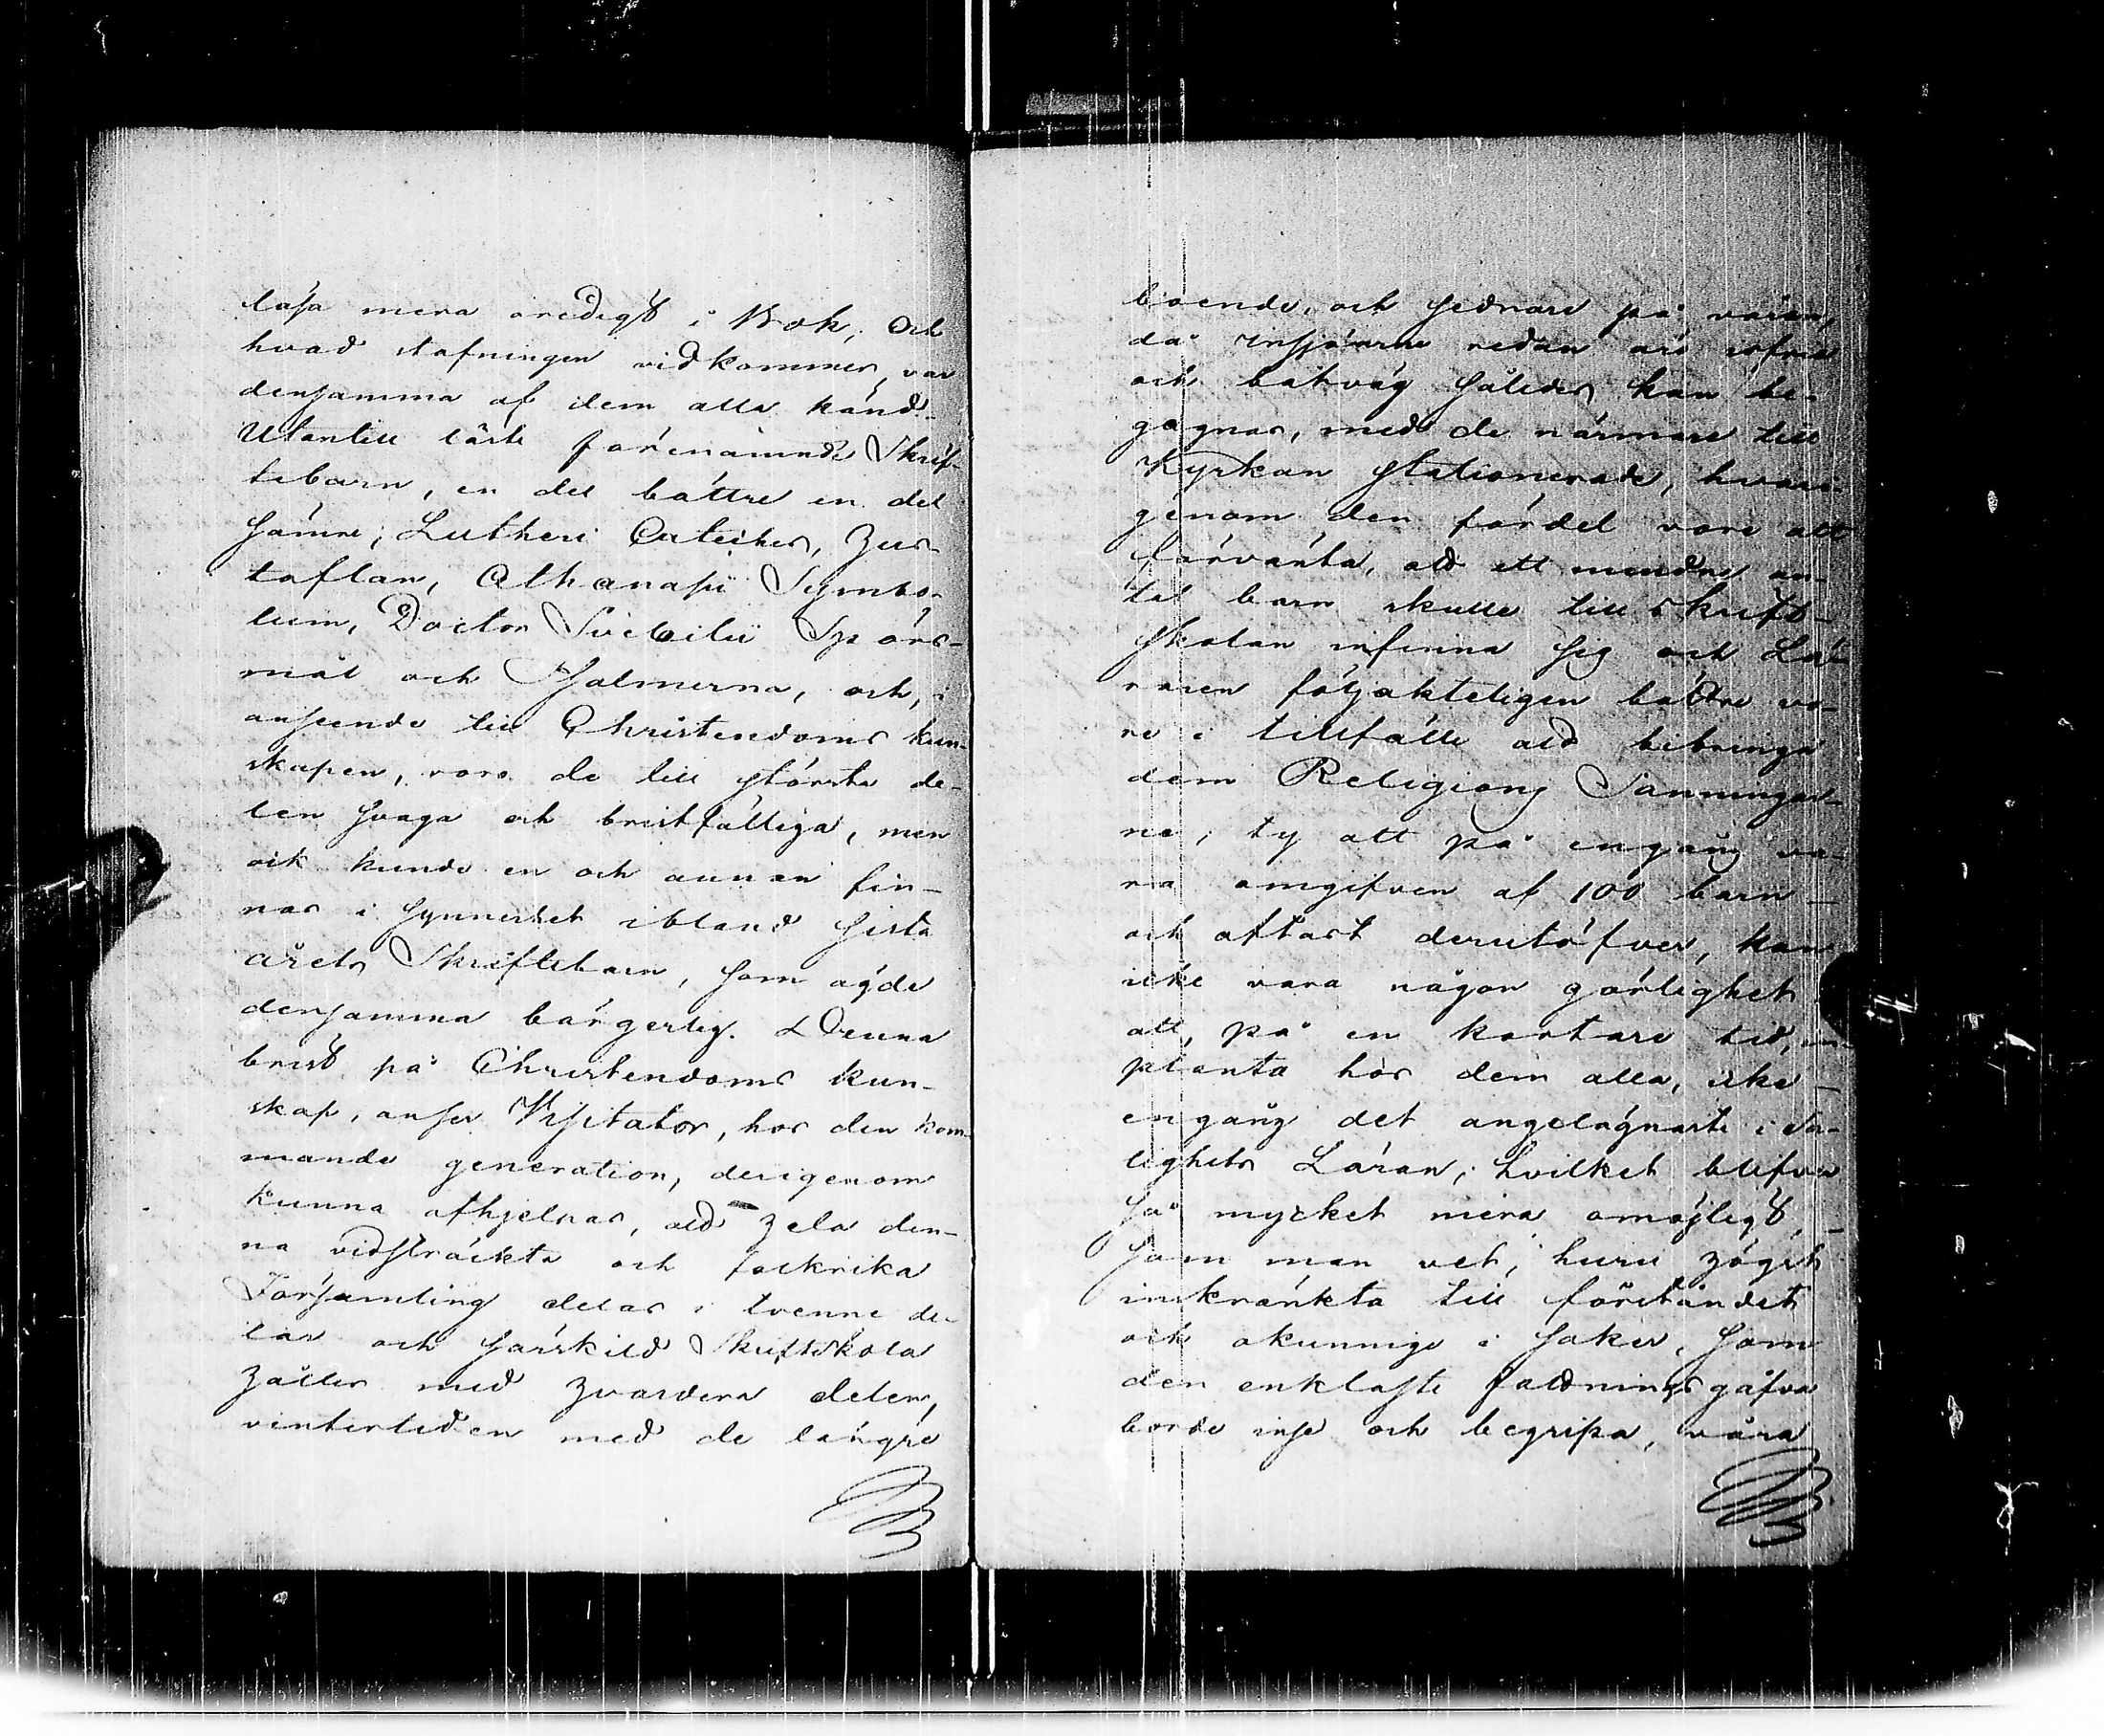 läsa mera oredigt i Bok; Och
hvad stafningen vidkommer, var
densamma af dem alla känd.
Utantill läste förenämnde Skrif-
tebarn, en del bättre en del
sämre; Lutheri Cateches, Hus-
taflan, Athanasii Symbo-
lum, Doctor Svebilii Spörs-
mål och Psalmerna, och, i
anseende till Christendoms kun-
skapen, voro de till största de-
len svaga och bristfälliga, men
ock kunde en och annan fin-
nas i synnerhet ibland sista
årets Skriftebarn, som ägde
densamma bärgerlig. Denna
brist på Christendoms kun-
skap, anser Visitator, hos den kom-
mande generation, derigenom
kunna afhjelpas, att hela den-
na vidsträckta och folkrika
Församling delas i tvenne de-
lar och särskild Skriftskola
hålles med hvardera delen,
vintertiden med de längre
boende, och sednare på våren,
då Insjöarne redan äro isfria
och båtväg således kan be-
gagnas, med de närmare till
Kyrkan stationerade, hvari-
genom den fördel vore att
förvänta, att ett mindre an-
tal barn skulle till skrift-
skolan infinna sig och Lä-
raren följakteligen bättre vo-
re i tillfälle att bibringa
dem Religions Sanningar-
na; ty att på engång va-
ra omgifven af 100 barn
och oftast derutöfver, kan
icke vara någon görlighet
att, på en kortare tid, in-
planta hos dem alla, icke
engång det angelägnaste i Sa-
lighets Läran; hvilket blifver
så mycket mera omöjligt,
som man vet, huru högst
inskränkta till förståndet
och okunnige i saker, som
den enklaste fattnings gåfva
borde inse och begripa, våra